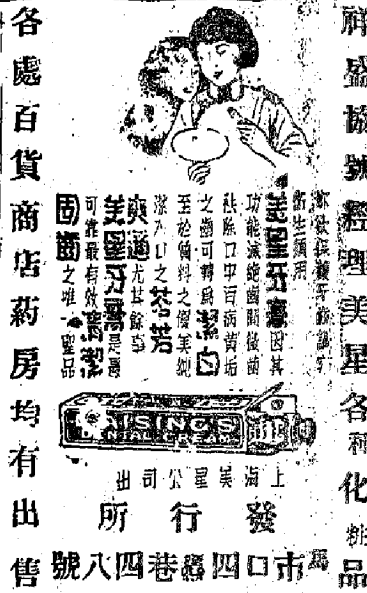 祥盛協號經理美星各種化粧品
欲保護牙齒
衛生須用
美星牙膏因其
功能滅絕齒間微菌
祛除口中百病黃垢
之齒可轉為潔白
至於料之優美純
潔口之芬芳
爽適尤其餘事
美星牙膏是最
可靠最有效清潔
固齒之唯一聖品
MAISING'S
DENTAL CREAM
上海美星公司出
發行所
馬市口四巷四八號
各處百貨商店葯房均有出售